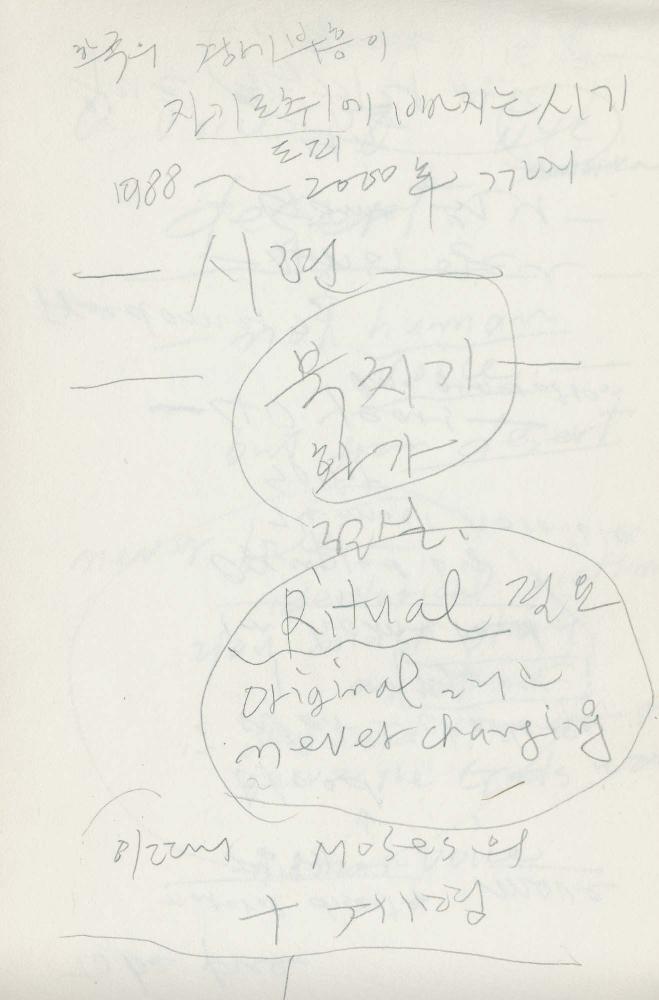 한국의 경제부흥이
자기도취에 빠지는 시기
도피
1988 ~ 2000年 까지
시련
북치기
화가
Ritual 필요
original 그리고
never changing
Moses의
十 계명